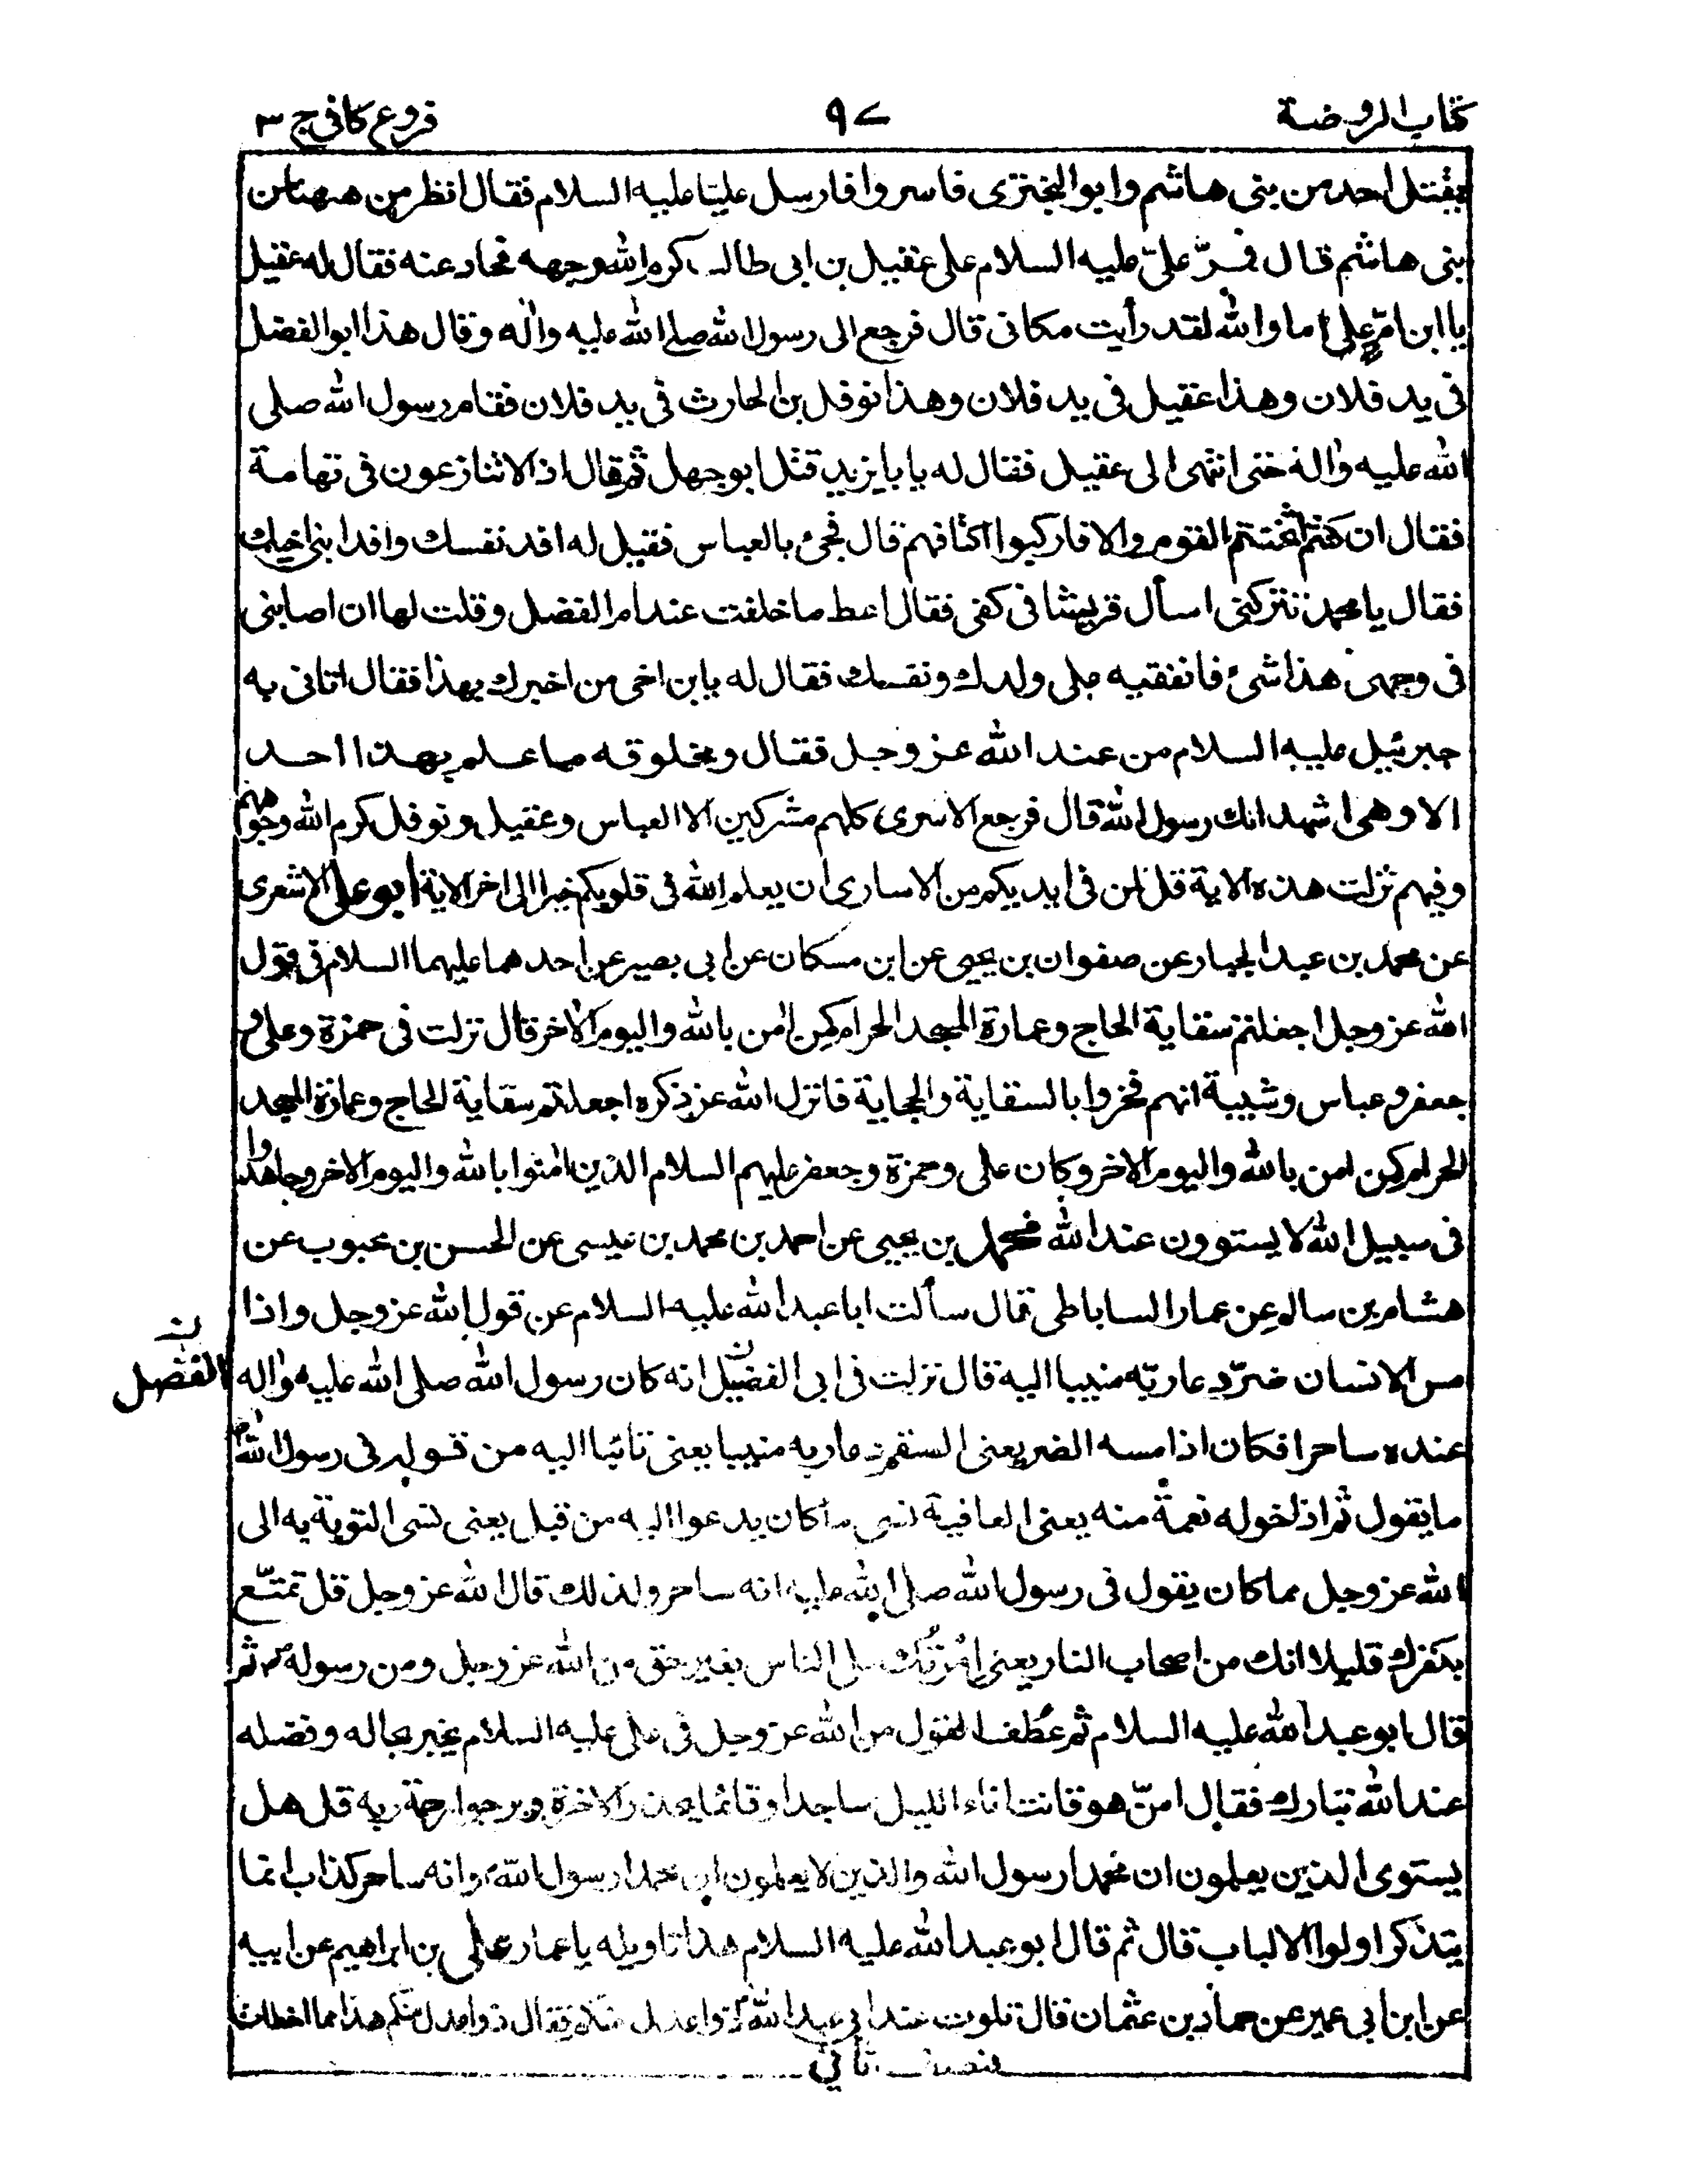 كتاب الروضة ۹۷ فروع كافى ج ۳
يقتل احد من بنى هاشم وابو البخترى فاسروا فارسل عليا عليه السلام فقال انظر من ههنا من
بنى هاشم قال فمرّ علىّ عليه السلام على عقيل بن ابى طالب كرم الله وجهه فحاد عنه فقال له عقيل
يا ابن امّ علىّ اما والله لقد رأيت مكانى قال فرجع الى رسول الله صلى الله عليه واٰله وقال هذا ابو الفضل
فى يد فلان وهذا عقيل فى يد فلان وهذا نوفل بن الحارث فى يد فلان فقام رسول الله صلى
الله عليه واٰله حتى انتهى الى عقيل فقال له يا بايزيد قتل ابو جهل ثم قال اذا لا تنازعون فى تهامة
فقال ان كنتم اثخنتم القوم والا فاركبوا اكتافهم قال فجئ بالعباس فقيل له افد نفسك وافد ابنى اخيك
فقال يا محمد تتركنى اسأل قريشا فى كفى فقال اعط ما خلفت عند ام الفضل وقلت لها ان اصابنى
فى وجهى هذا شئ فانفقيه على ولدك ونفسك فقال له يا بن اخى من اخبرك بهذا فقال اتانى به
جبرئيل عليه السلام من عند الله عز وجل فقال ومحلوفه ما علم بهذا احد
الا وهى اشهد انك رسول الله قال فرجع الاسرى كلهم مشركين الا العباس وعقيل ونوفل كرم الله وجوههم
وفيهم نزلت هذه الاية قل لمن فى ايديكم من الاسارى ان يعلم الله فى قلوبكم خيرا الى اخر الاية ابو على الاشعرى
عن محمد بن عبد الجبار عن صفوان بن يحيى عن ابن مسكان عن ابى بصير عن احدهما عليهما السلام فى قول
الله عز وجل اجعلتم سقاية الحاج وعمارة المسجد الحرام كمن اٰمن بالله واليوم الاٰخر قال نزلت فى حمزة وعلى و
جعفر وعباس وشيبة انهم فخروا بالسقاية والحجابة فانزل الله عز ذكره اجعلتم سقاية الحاج وعمارة المسجد
الحرام كمن امن بالله واليوم الاخر وكان على وحمزة وجعفر عليهم السلام الذين اٰمنوا بالله واليوم الاخر وجاهدوا
فى سبيل الله لا يستوون عند الله محمد بن يحيى عن احمد بن محمد بن عيسى عن الحسن بن محبوب عن
هشام بن سالم عن عمار الساباطى قال سألت ابا عبد الله عليه السلام عن قول الله عز وجل واذا
مس الانسان ضرّ دعا ربّه منيبا اليه قال نزلت فى ابى الفضيل انه كان رسول الله صلى الله عليه واٰله
الفضل ن
عنده ساحرا فكان اذا مسه الضر يعنى السقم دعا ربه منيبا يعنى تائبا اليه من قوله فى رسول الله ص
ما يقول ثم اذا خوله نعمة منه يعنى العافية نسى ما كان يدعوا اليه من قبل يعنى نسى التوبة به الى
الله عز وجل مما كان يقول فى رسول الله صلى الله عليه انه ساحر ولذلك قال الله عز وجل قل تمتّع
بكفرك قليلا انك من اصحاب النار يعنى امرتك على الناس بغير حق من الله عز وجل ومن رسوله ص ثم
قال ابو عبد الله عليه السلام ثم عطف القول من الله عز وجل فى على عليه السلام يخبر بحاله وفضله
عند الله تبارك فقال امنّ هو قانت اٰناء الليل ساجدا وقائما يحذر الاخرة ويرجوا رحمة ربه قل هل
يستوى الذين يعلمون ان محمدا رسول الله والذين لا يعلمون ان محمدا رسول الله وانه ساحر كذاب انما
يتذكر اولوا الالباب قال ثم قال ابو عبد الله عليه السلام هذا تاويله يا عمار على بن ابراهيم عن ابيه
عن ابن ابى عمير عن حماد بن عثمان قال تلوت عند ابى عبد الله ذوا عدل منكم فقال ذو عدل منكم هذا مما اخطات
نصف ثانى